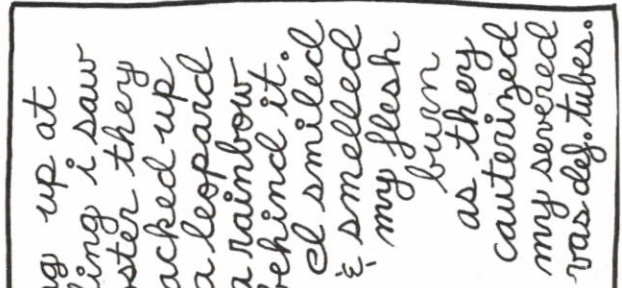 ng up at
ling i saw
ster they
acked up
a leopard
a rainbow
behind it.
I smiled
& smelled
my flesh
burn
as they
cauterized
my severed
vas def. tubes.